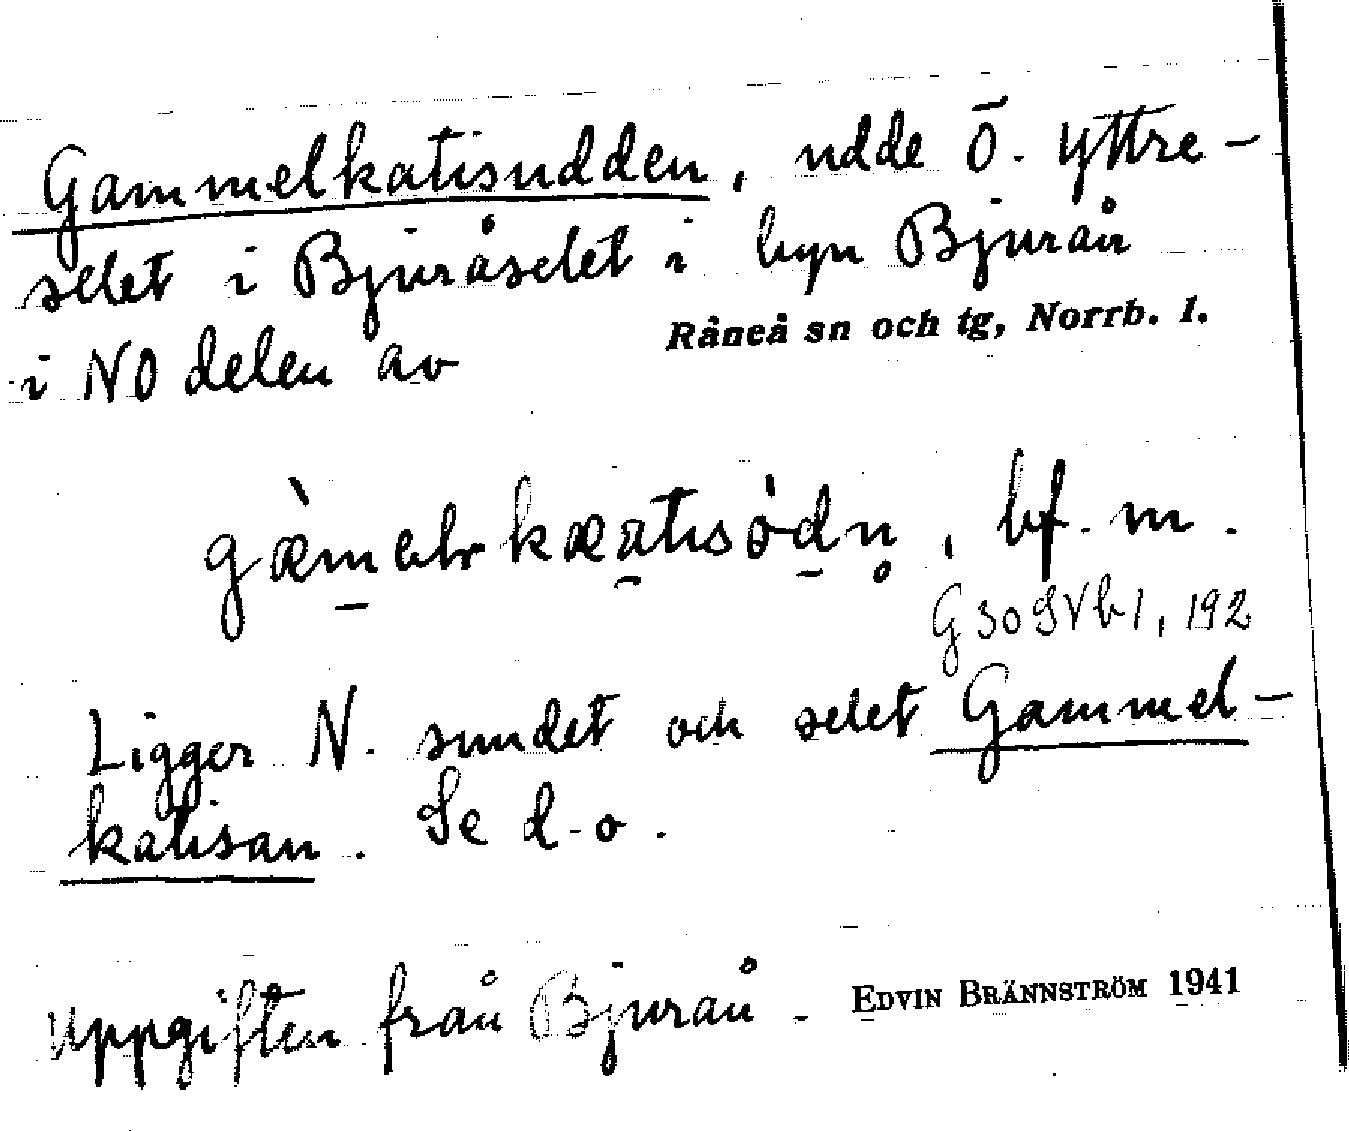 Gammelkatisudden, udde Ö. Yttre-
selet i Bjuråselet i byn Bjurån
i NO delen av Råneå sn och tg, Norrb. l.
bf. m.
G 30 SVb1, 192
Ligger N. sundet och selet Gammel-
katisan. Se d-o.
Uppgiften från Bjurån. EDVIN BRÄNNSTRÖM 1941